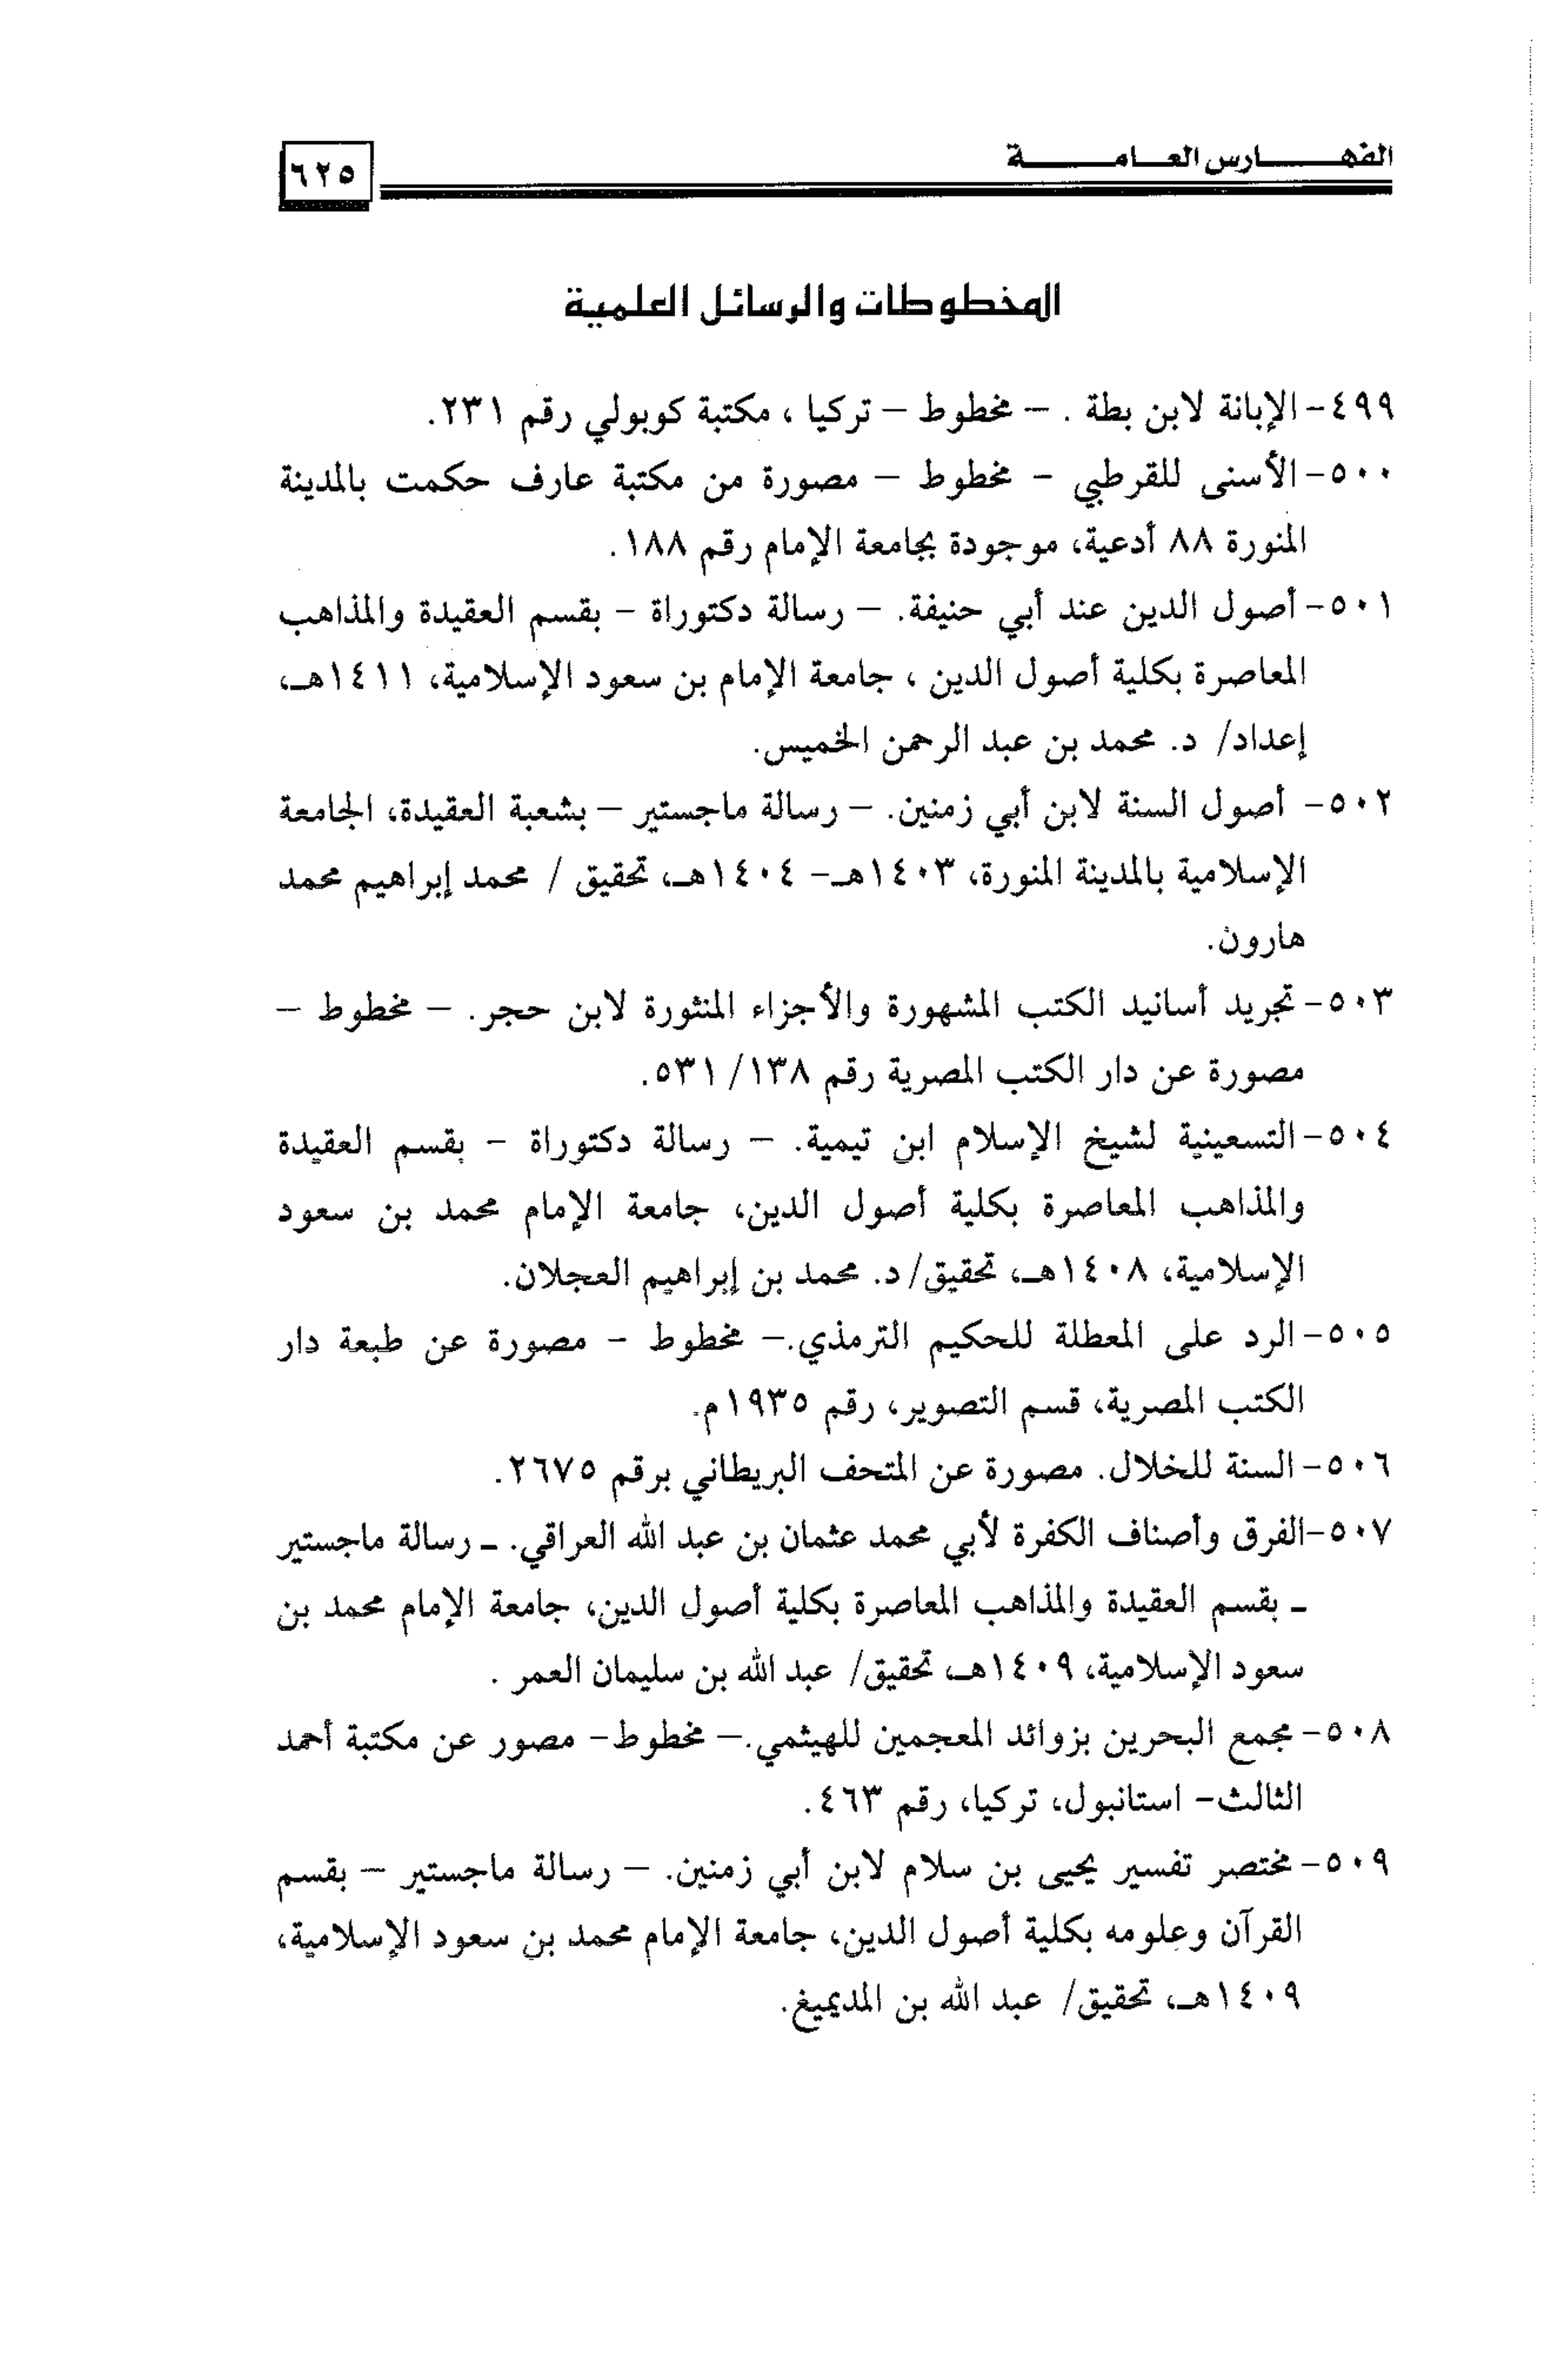 الفهارس العامة
٦٢٥
المخطوطات والرسائل العلمية
٤٩٩- الإبانة لابن بطة . – مخطوط – تركيا ، مكتبة كوبولي رقم ٢٣١.
٥٠٠- الأسنى للقرطبي - مخطوط – مصورة من مكتبة عارف حكمت بالمدينة
المنورة ٨٨ أدعية، موجودة بجامعة الإمام رقم ١٨٨.
٥٠١- أصول الدين عند أبي حنيفة. – رسالة دكتوراة - بقسم العقيدة والمذاهب
المعاصرة بكلية أصول الدين ، جامعة الإمام بن سعود الإسلامية، ١٤١١هـ،
إعداد/ د. محمد بن عبد الرحمن الخميس.
٥٠٢- أصول السنة لابن أبي زمنين. – رسالة ماجستير – بشعبة العقيدة، الجامعة
الإسلامية بالمدينة المنورة، ١٤٠٣هـ- ١٤٠٤هـ، تحقيق / محمد إبراهيم محمد
هارون.
٥٠٣- تجريد أسانيد الكتب المشهورة والأجزاء المنثورة لابن حجر. – مخطوط –
مصورة عن دار الكتب المصرية رقم ١٣٨/ ٥٣١.
٥٠٤- التسعينية لشيخ الإسلام ابن تيمية. – رسالة دكتوراة - بقسم العقيدة
والمذاهب المعاصرة بكلية أصول الدين، جامعة الإمام محمد بن سعود
الإسلامية، ١٤٠٨هـ، تحقيق/ د. محمد بن إبراهيم العجلان.
٥٠٥- الرد على المعطلة للحكيم الترمذي.– مخطوط - مصورة عن طبعة دار
الكتب المصرية، قسم التصوير، رقم ١٩٣٥م.
٥٠٦- السنة للخلال. مصورة عن المتحف البريطاني برقم ٢٦٧٥.
٥٠٧-الفرق وأصناف الكفرة لأبي محمد عثمان بن عبد الله العراقي. ـ رسالة ماجستير
ـ بقسم العقيدة والمذاهب المعاصرة بكلية أصول الدين، جامعة الإمام محمد بن
سعود الإسلامية، ١٤٠٩هـ، تحقيق/ عبد الله بن سليمان العمر .
٥٠٨- مجمع البحرين بزوائد المعجمين للهيثمي.– مخطوط- مصور عن مكتبة أحمد
الثالث- استانبول، تركيا، رقم ٤٦٣.
٥٠٩- مختصر تفسير يحيى بن سلام لابن أبي زمنين. – رسالة ماجستير – بقسم
القرآن وعلومه بكلية أصول الدين، جامعة الإمام محمد بن سعود الإسلامية،
١٤٠٩هـ، تحقيق/ عبد الله بن المديميغ.